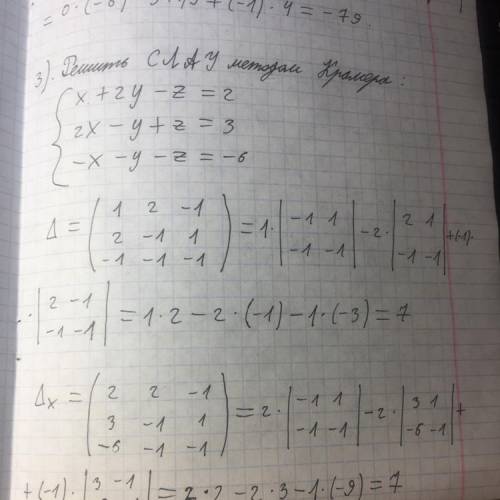 = 0 · (-6) - 3 · 49 + (-1) · 4 = -79.
3). Решить СЛАУ методом Крамера:
x + 2y - z = 2
2x - y + z = 3
-x - y - z = -6
Δ = (1 2 -1
2 -1 1
-1 -1 -1) = 1 · |-1 1
-1 -1| - 2 · |2 1
-1 -1| + (-1) ·
· |2 -1
-1 -1| = 1 · 2 - 2 · (-1) - 1 · (-3) = 7
Δx = (2 2 -1
3 -1 1
-6 -1 -1) = 2 · |-1 1
-1 -1| - 2 · |3 1
-6 -1| +
+ (-1) · |3 -1| = 2 · 2 - 2 · 3 - 1 · (-9) = 7